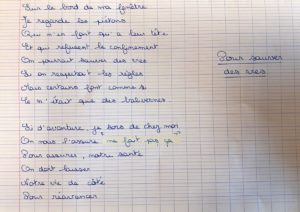 Sur le bord de ma fenêtre
Je regarde les piétons
Qui n'en font qu'à leur tête
Et qui refusent le confinement
On pourrait sauver des vies
Si on respectait les règles
Mais certains font comme si
Ce n'était que des balivernes
Pour sauver
des vies
Si d'aventure, je sors de chez moi
On nous l'assure, ne fait pas ça
Pour assurer, notre santé
On doit laisser
Notre vie de côté
Pour